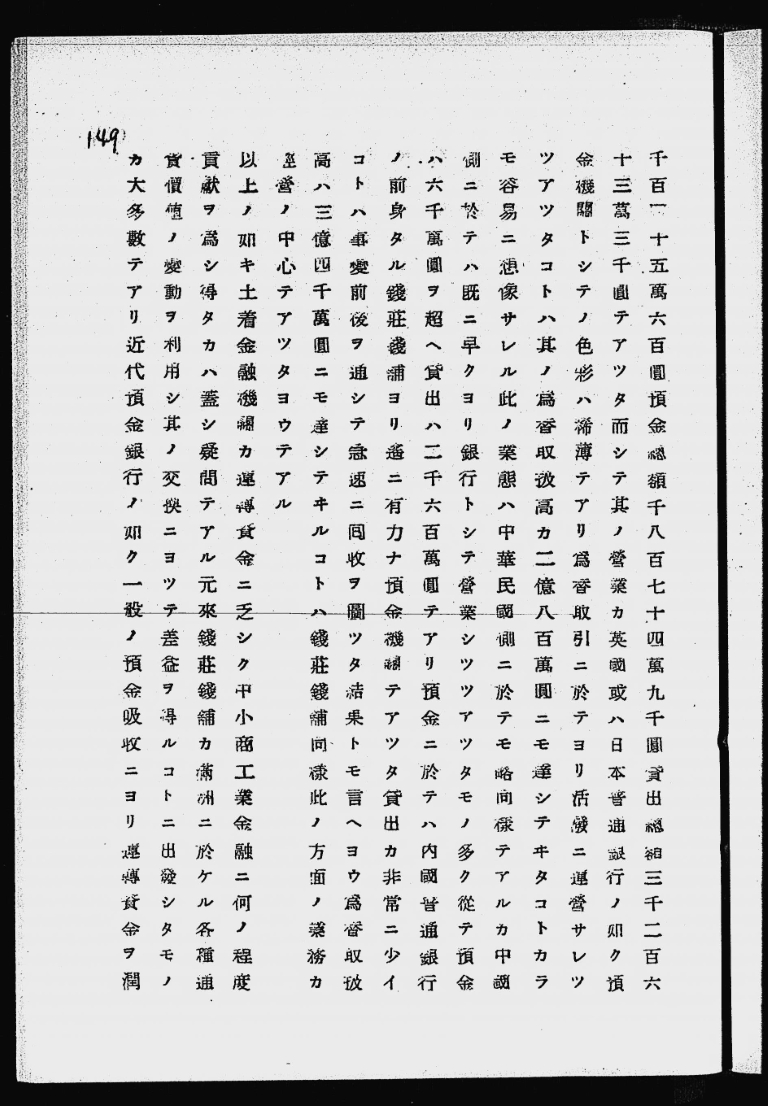 149
千百一十五萬六百圓預金總額千八百七十四萬九千圓貸出總額三千二百六
十三萬三千圓テアツタ而シテ其ノ營業カ英國或ハ日本普通銀行ノ如ク預
金機關トシテノ色彩ハ稀薄テアリ爲替取引ニ於テヨリ活潑ニ運營サレツ
ツアツタコトハ其ノ爲替取扱高カ二億八百萬圓ニモ達シテヰタコトカラ
モ容易ニ想像サレル此ノ業態ハ中華民國側ニ於テモ略同樣テアルカ中國
側ニ於テハ既ニ早クヨリ銀行トシテ營業シツツアツタモノ多ク從テ預金
ハ六千萬圓ヲ超ヘ貸出ハ二千六百萬圓テアリ預金ニ於テハ內國普通銀行
ノ前身タル錢莊錢舖ヨリ遙ニ有力ナ預金機關テアツタ貸出カ非常ニ少イ
コトハ事變前後ヲ通シテ急速ニ回收ヲ圖ツタ結果トモ言ヘヨウ爲替取扱
高ハ三億四千萬圓ニモ達シテヰルコトハ錢莊錢舖同樣此ノ方面ノ業務カ
經營ノ中心テアツタヨウテアル
以上ノ如キ土着金融機關カ運轉資金ニ乏シク中小商工業金融ニ何ノ程度
貢獻ヲ爲シ得タカハ蓋シ疑問テアル元來錢莊錢舖カ滿洲ニ於ケル各種通
貨價値ノ變動ヲ利用シ其ノ交換ニヨツテ差益ヲ得ルコトニ出發シタモノ
カ大多數テアリ近代預金銀行ノ如ク一般ノ預金吸收ニヨリ運轉資金ヲ潤